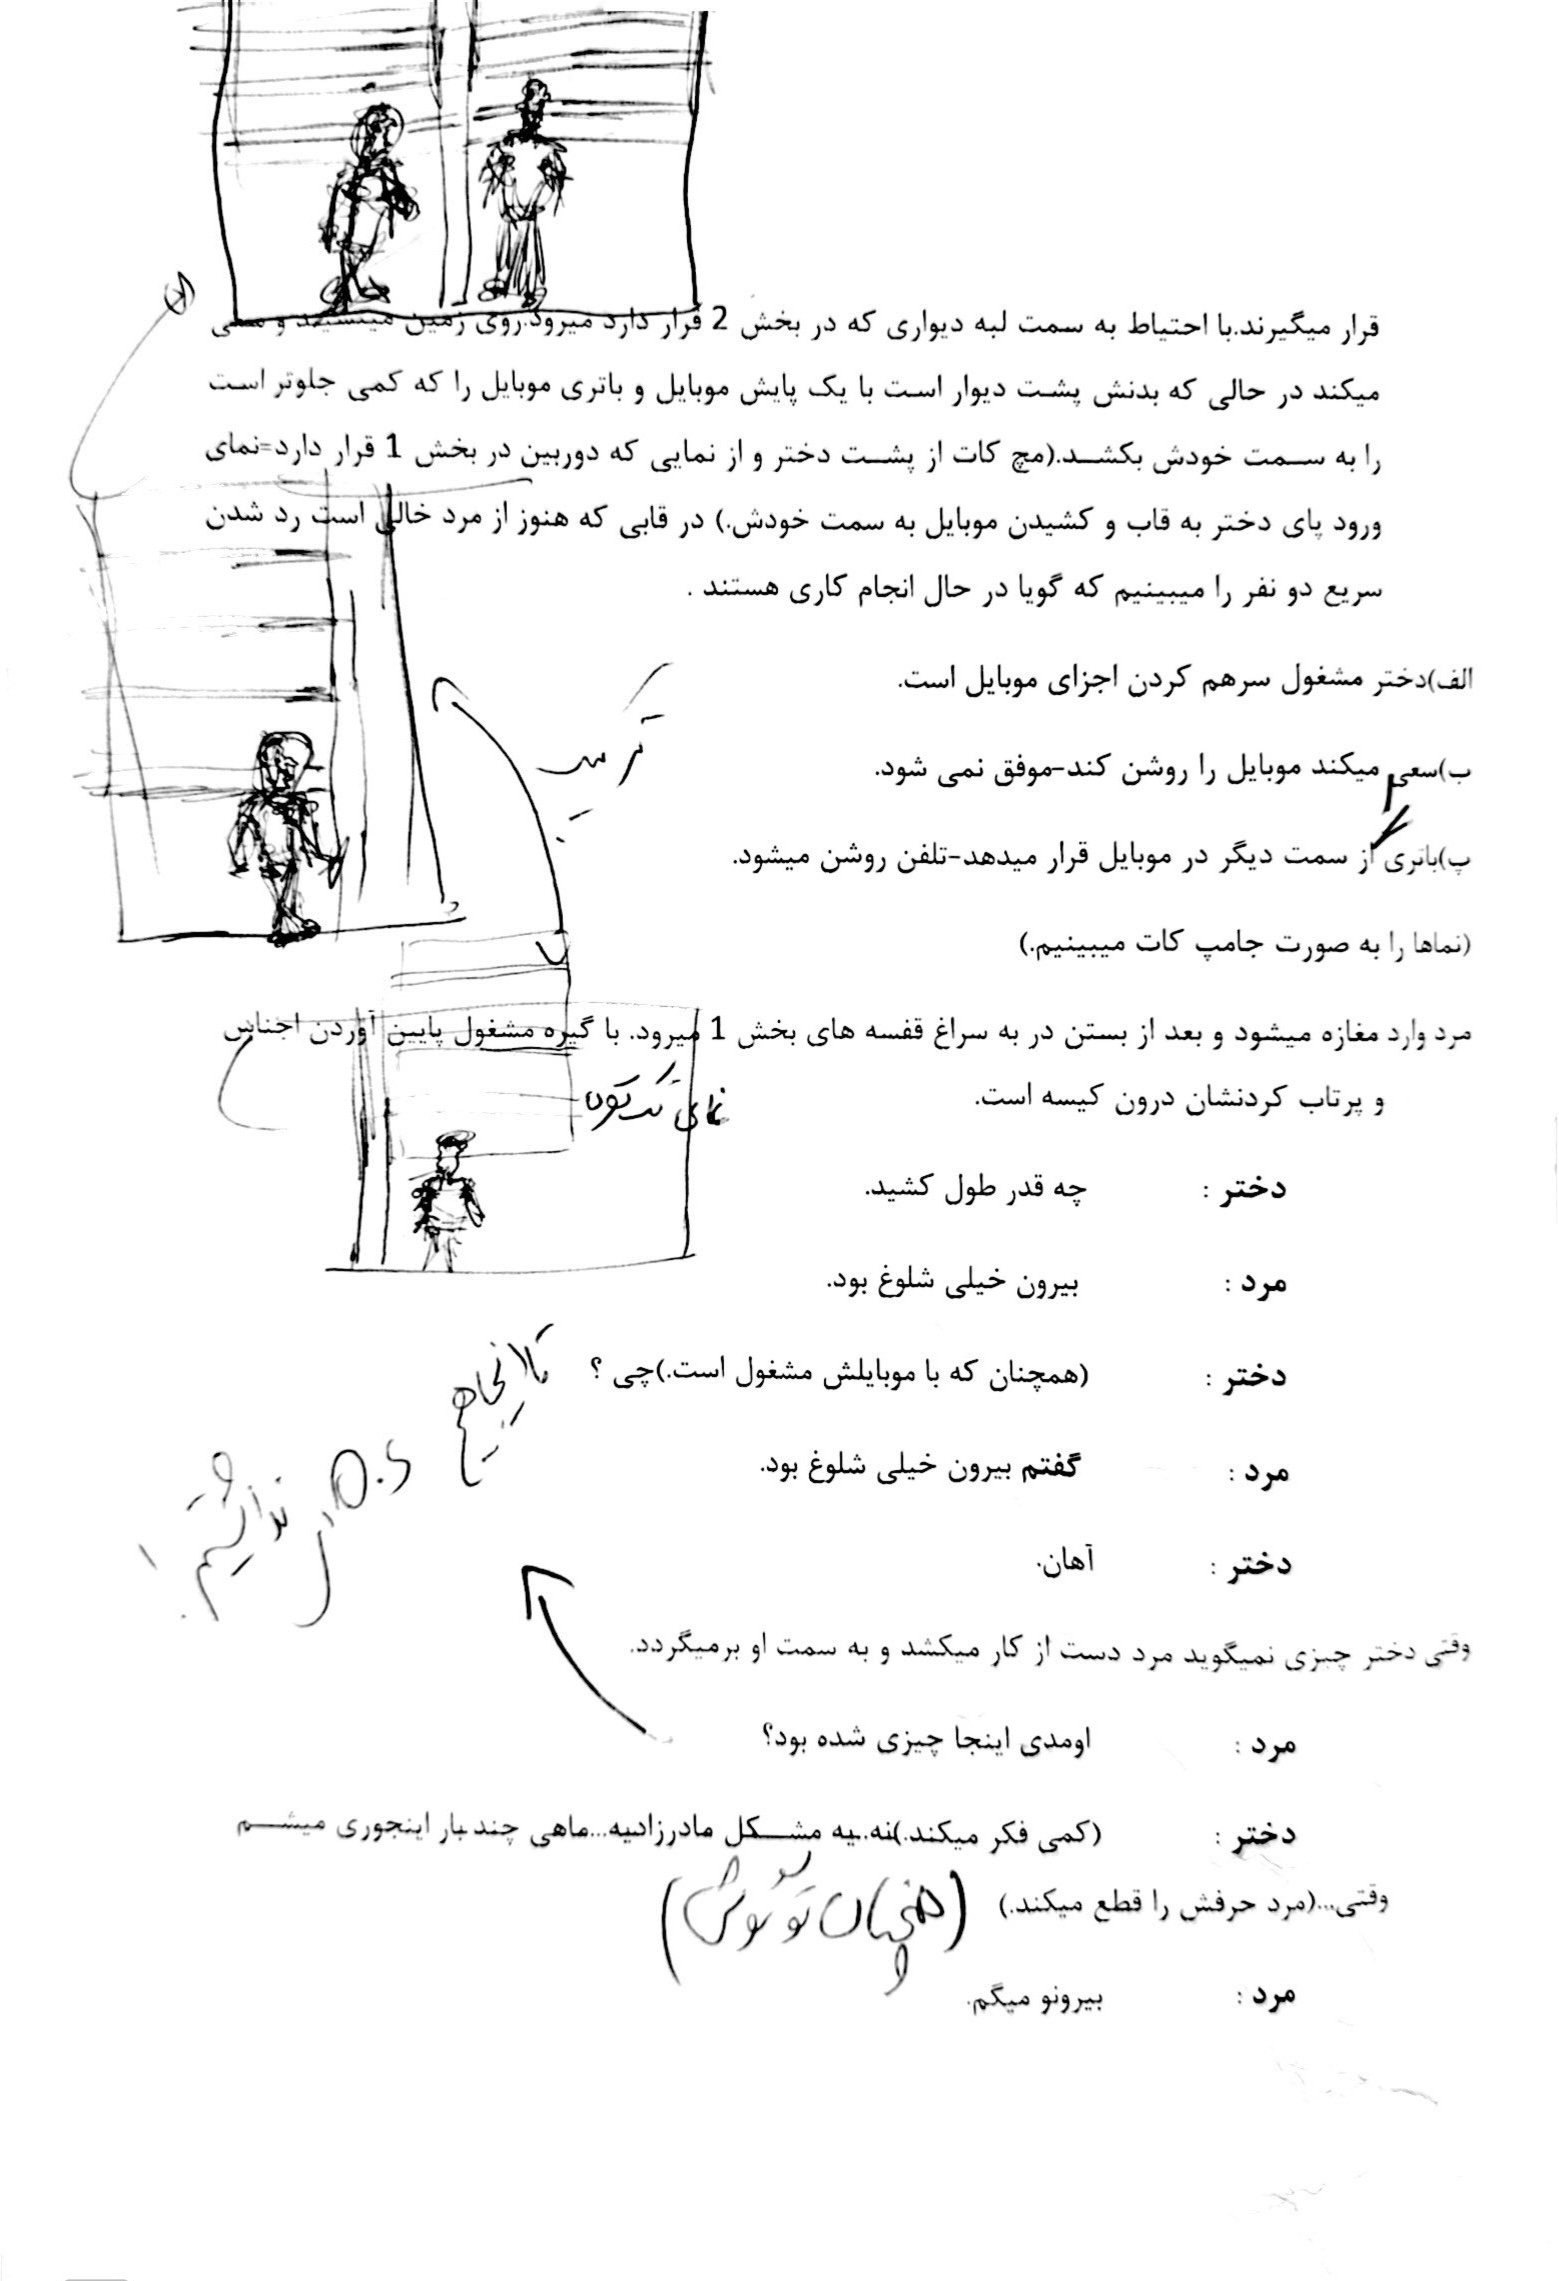 قرار میگیرند.با احتیاط به سمت لبه دیواری که در بخش 2 قرار دارد میرود.روی زمین مینشیند و سعی
میکند در حالی که بدنش پشت دیوار است با یک پایش موبایل و باتری موبایل را که کمی جلوتر است
را به سمت خودش بکشد.(مچ کات از پشت دختر و از نمایی که دوربین در بخش 1 قرار دارد=نمای
ورود پای دختر به قاب و کشیدن موبایل به سمت خودش.) در قابی که هنوز از مرد خالی است رد شدن
سریع دو نفر را میبینیم که گویا در حال انجام کاری هستند .
الف)دختر مشغول سرهم کردن اجزای موبایل است.
ب)سعی میکند موبایل را روشن کند-موفق نمی شود.
پ)باتری از سمت دیگر در موبایل قرار میدهد-تلفن روشن میشود.
(نماها را به صورت جامپ کات میبینیم.)
مرد وارد مغازه میشود و بعد از بستن در به سراغ قفسه های بخش 1 میرود. با گیره مشغول پایین آوردن اجناس
و پرتاب کردنشان درون کیسه است.
نمای
دختر : چه قدر طول کشید.
مرد : بیرون خیلی شلوغ بود.
دختر : (همچنان که با موبایلش مشغول است.)چی ؟
مرد : گفتم بیرون خیلی شلوغ بود.
دختر : آهان.
تا اینجا هیچ O.S نداشتیم!
وقتی دختر چیزی نمیگوید مرد دست از کار میکشد و به سمت او برمیگردد.
مرد : اومدی اینجا چیزی شده بود؟
دختر : (کمی فکر میکند.)نه.یه مشکل مادرزادیه...ماهی چند بار اینجوری میشم
وقتی...(مرد حرفش را قطع میکند.) (همچنان تو گوشی)
مرد : بیرونو میگم.